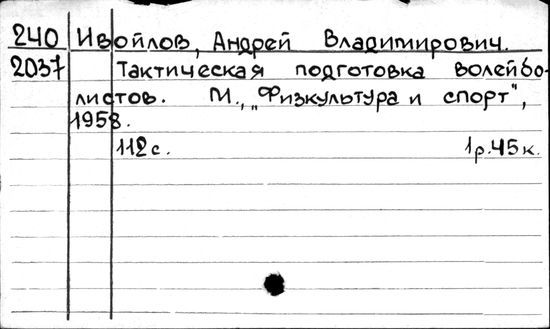 240 Ивойлов, Андрей Владимирович.
2037 Тактическая подготовка волейбо-
листов. М., „Физкультура и спорт",
1958.
112 с. 1р.45к.